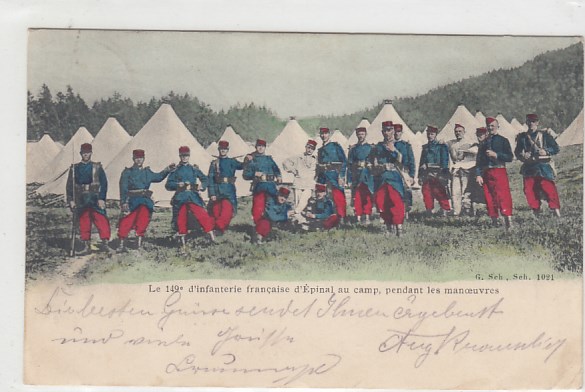 G. Sch., Sch. 1021
Le 149e d'infanterie française d'Épinal au camp, pendant les manœuvres
Die besten Grüsse sendet Ihnen Ergebenst
und viele
Aug